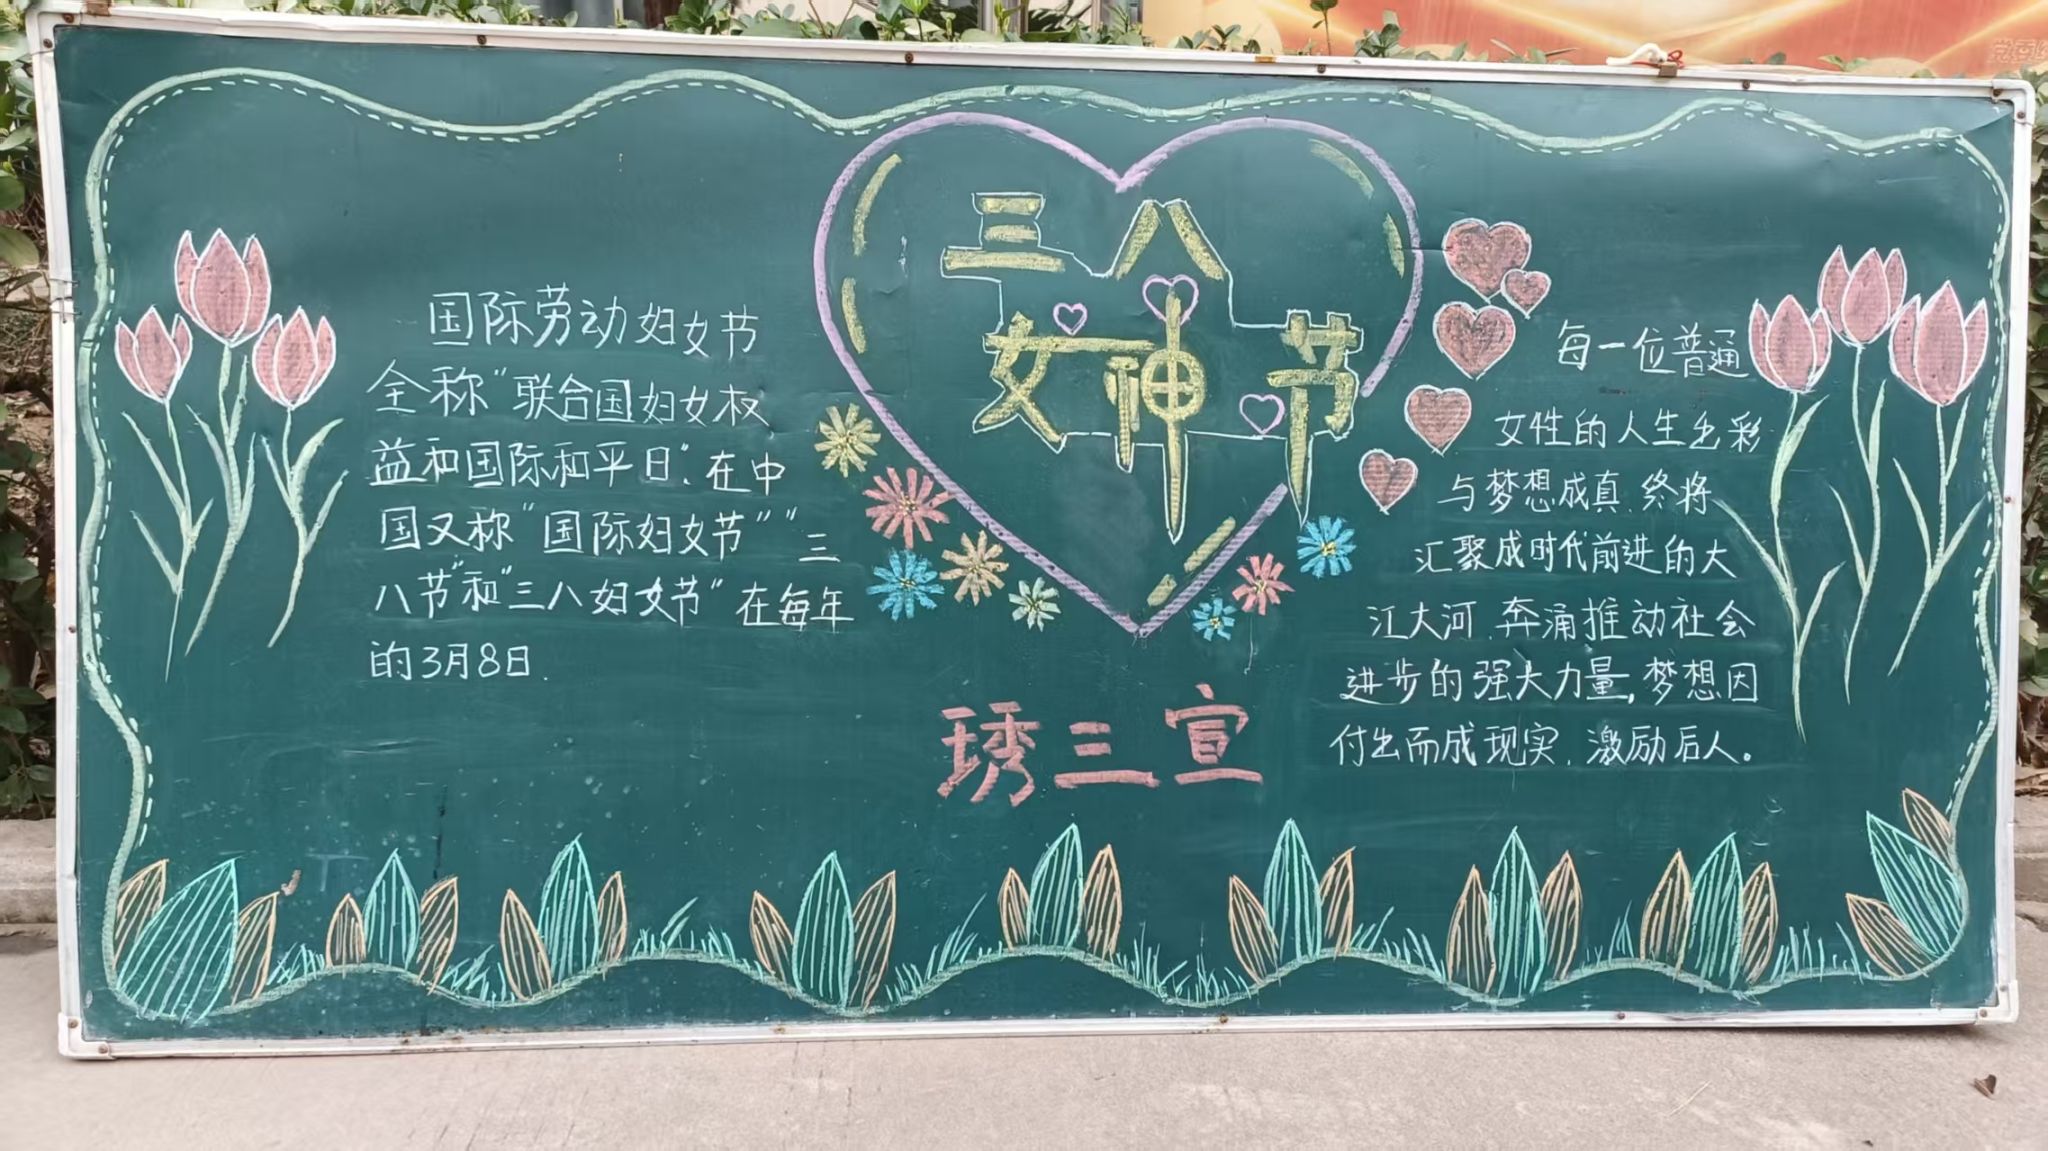 三八
女神节
国际劳动妇女节
全称"联合国妇女权
益和国际和平日".在中
国又称"国际妇女节""三
八节"和"三八妇女节"在每年
的3月8日.
每一位普通
女性的人生出彩
与梦想成真.终将
汇聚成时代前进的大
江大河.奔涌推动社会
进步的强大力量,梦想因
付出而成现实.激励后人。
琇三宣
党委